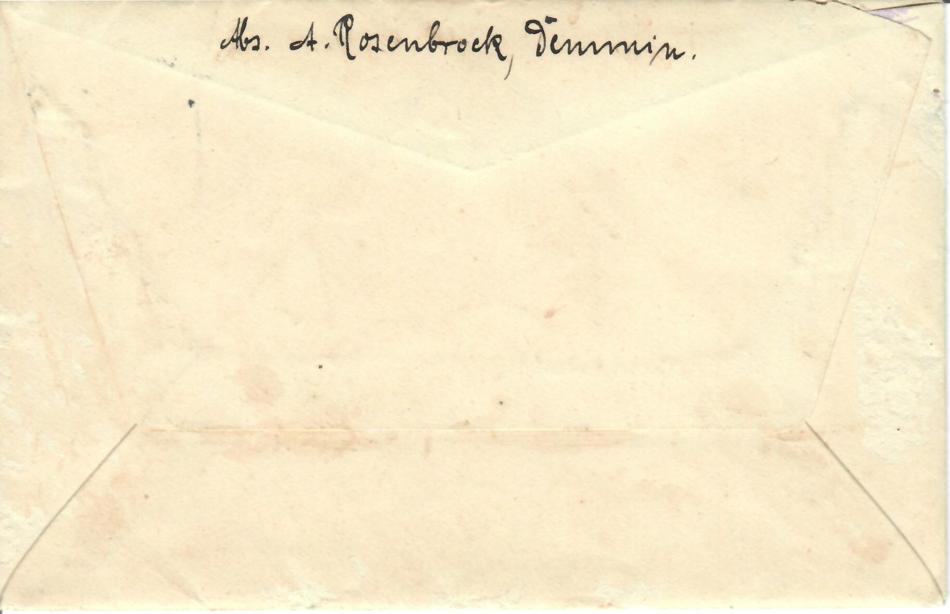 Abs. A. Rosenbrock, Demmin.